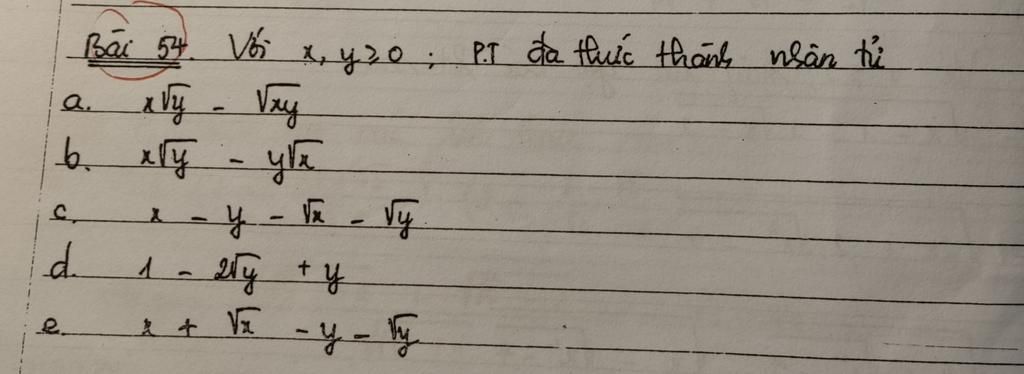 Bài 54. Với x, y ≥ 0 ; P.T đa thức thành nhân tử
a. x√y - √xy
b. x√y - y√x
c. x - y - √x - √y
d. 1 - 2√y + y
e. x + √x - y - √y